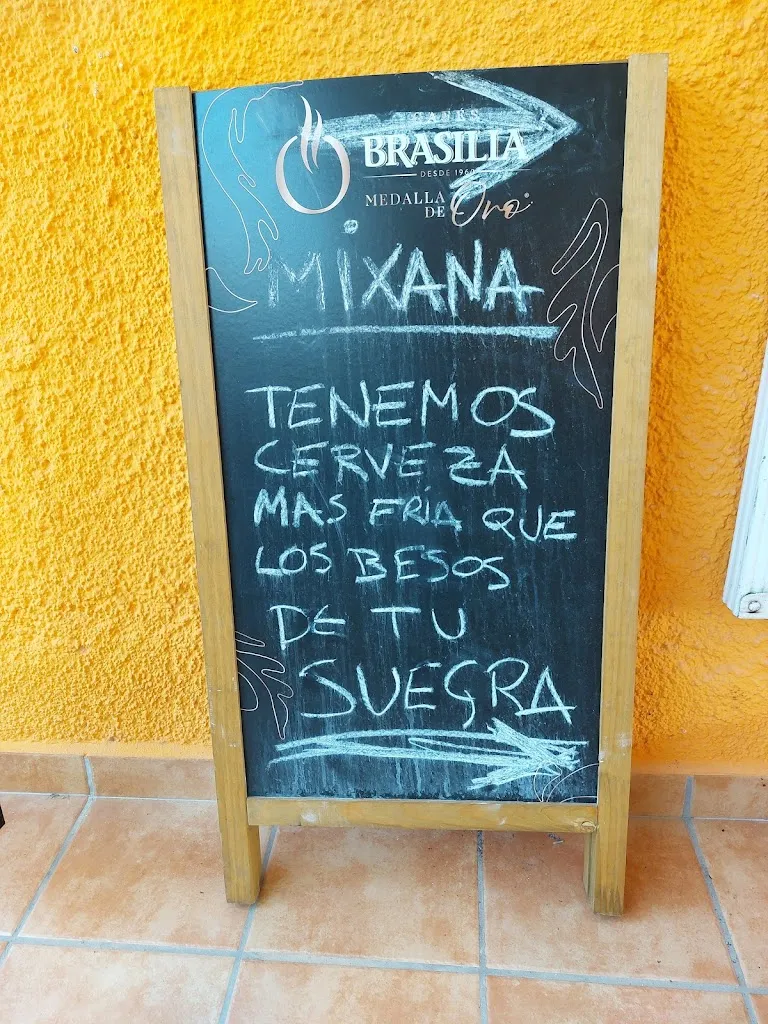 CAFÉS
BRASILIA
DESDE 1960
MEDALLA
DE Oro
MIXANA
TENEMOS
CERVEZA
MAS FRÍA QUE
LOS BESOS
DE TU
SUEGRA